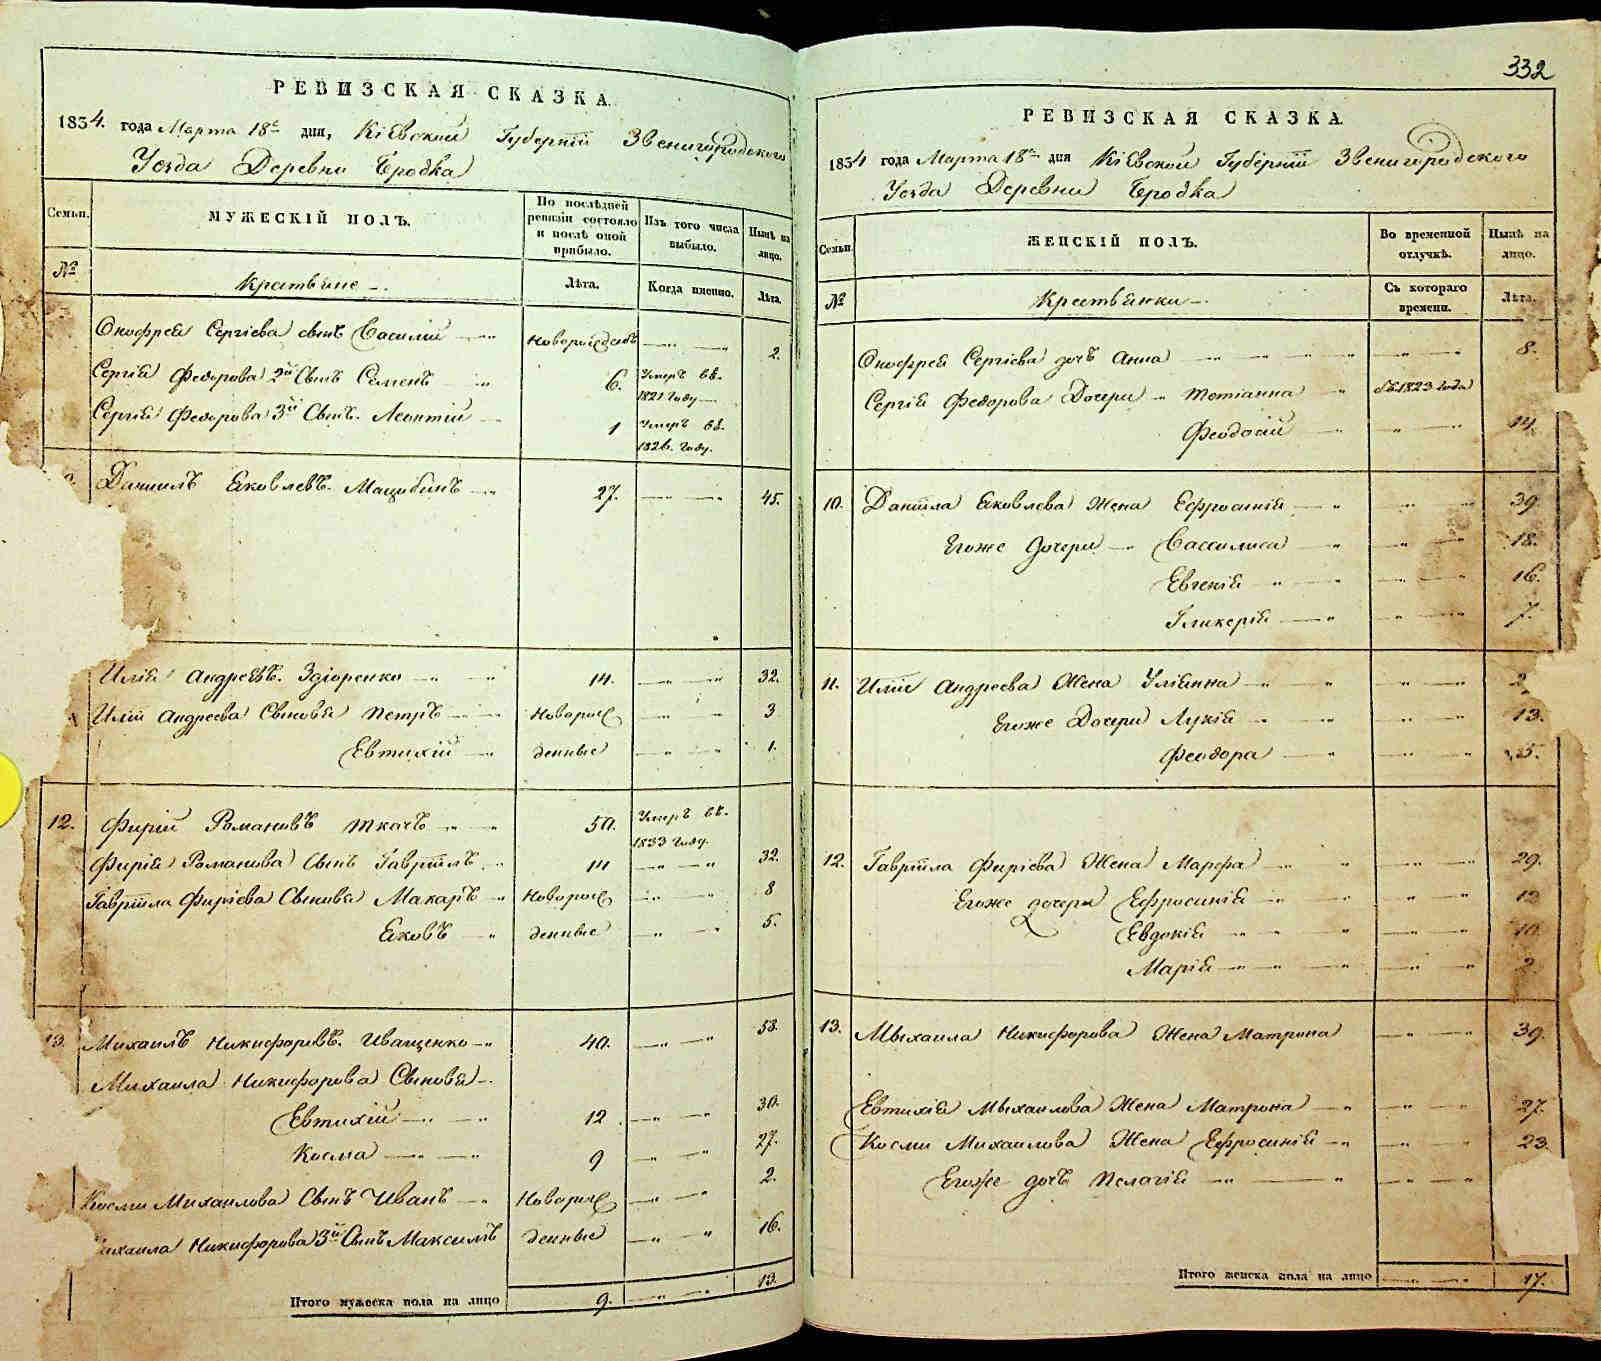 332
РЕВИЗСКАЯ СКАЗКА.
1834. года Марта 18го дня, Кіевской Губерніи Звенигородского
Уезда Деревни Бродка
Семьи.
МУЖЕСКІЙ ПОЛЪ.
По послѣдней ревизіи состояло и послѣ оной прибыло.
Изъ того числа выбыло.
Нынѣ на лицо.
№
Крестьяне
Лѣта.
Когда именно.
Лѣта.
Онофрея Сергіева сынъ Василій Новорожденъ 2.
Сергія Федорова 2й Сынъ Семенъ 6. Умеръ въ 1821 году
Сергія Федорова 3й Сынъ Леонтій 1 Умеръ въ 1826. году.
Даниилъ Яковлевъ Мацюбинъ 27. 45.
Илія Андреевъ. Здіоренко 14. 32.
Иліи Андреева Сыновья Петръ Новорож 3
Евтихій денные 1.
12. Фирій Романовъ Ткачъ 50. Умеръ въ 1833 году.
Фирія Романова Сынъ Гавріилъ 14 32.
Гавріила Фиріева Сыновья Макаръ Новорож 8
Яковъ денные 5.
13. Михаилъ Никифоровъ. Иващенко 40. 58.
Михаила Никифорова Сыновья
Евтихій 12 30.
Косма 9 27.
Косми Михаилова Сынъ Иванъ Новорож 2.
Михаила Никифорова 3й Сынъ Максимъ денные 16.
Итого мужеска пола на лицо 9. 13.
РЕВИЗСКАЯ СКАЗКА.
1834 года Марта 18го дня Кіевской Губерніи Звенигородского
Уезда Деревни Бродка
Семьи.
ЖЕНСКІЙ ПОЛЪ.
Во временной отлучкѣ.
Нынѣ на лицо.
№
Крестьянки
Съ котораго времени.
Лѣта.
Онофрея Сергіева дочь Анна 8.
Сергія Федорова Дочери Тетіанна съ 1823 года
Феодосій 14.
10. Даніила Яковлева Жена Ефросинія 39.
Егоже Дочери Вассилиса 18.
Евгенія 16.
Гликерія 7.
11. Иліи Андреева Жена Уліянна 2
Егоже Дочери Лукія 13.
Феодора 5.
12. Гавріила Фиріева Жена Марфа 29.
Егоже дочери Ефросинія 12
Евдокія 10.
Марія 2.
13. Мыхаила Никифорова Жена Матрона 39.
Евтихія Мыхаилова Жена Матрона 27.
Косми Михаилова Жена Ефросинія 23.
Егоже дочь Пелагія
Итого женска пола на лицо 17.